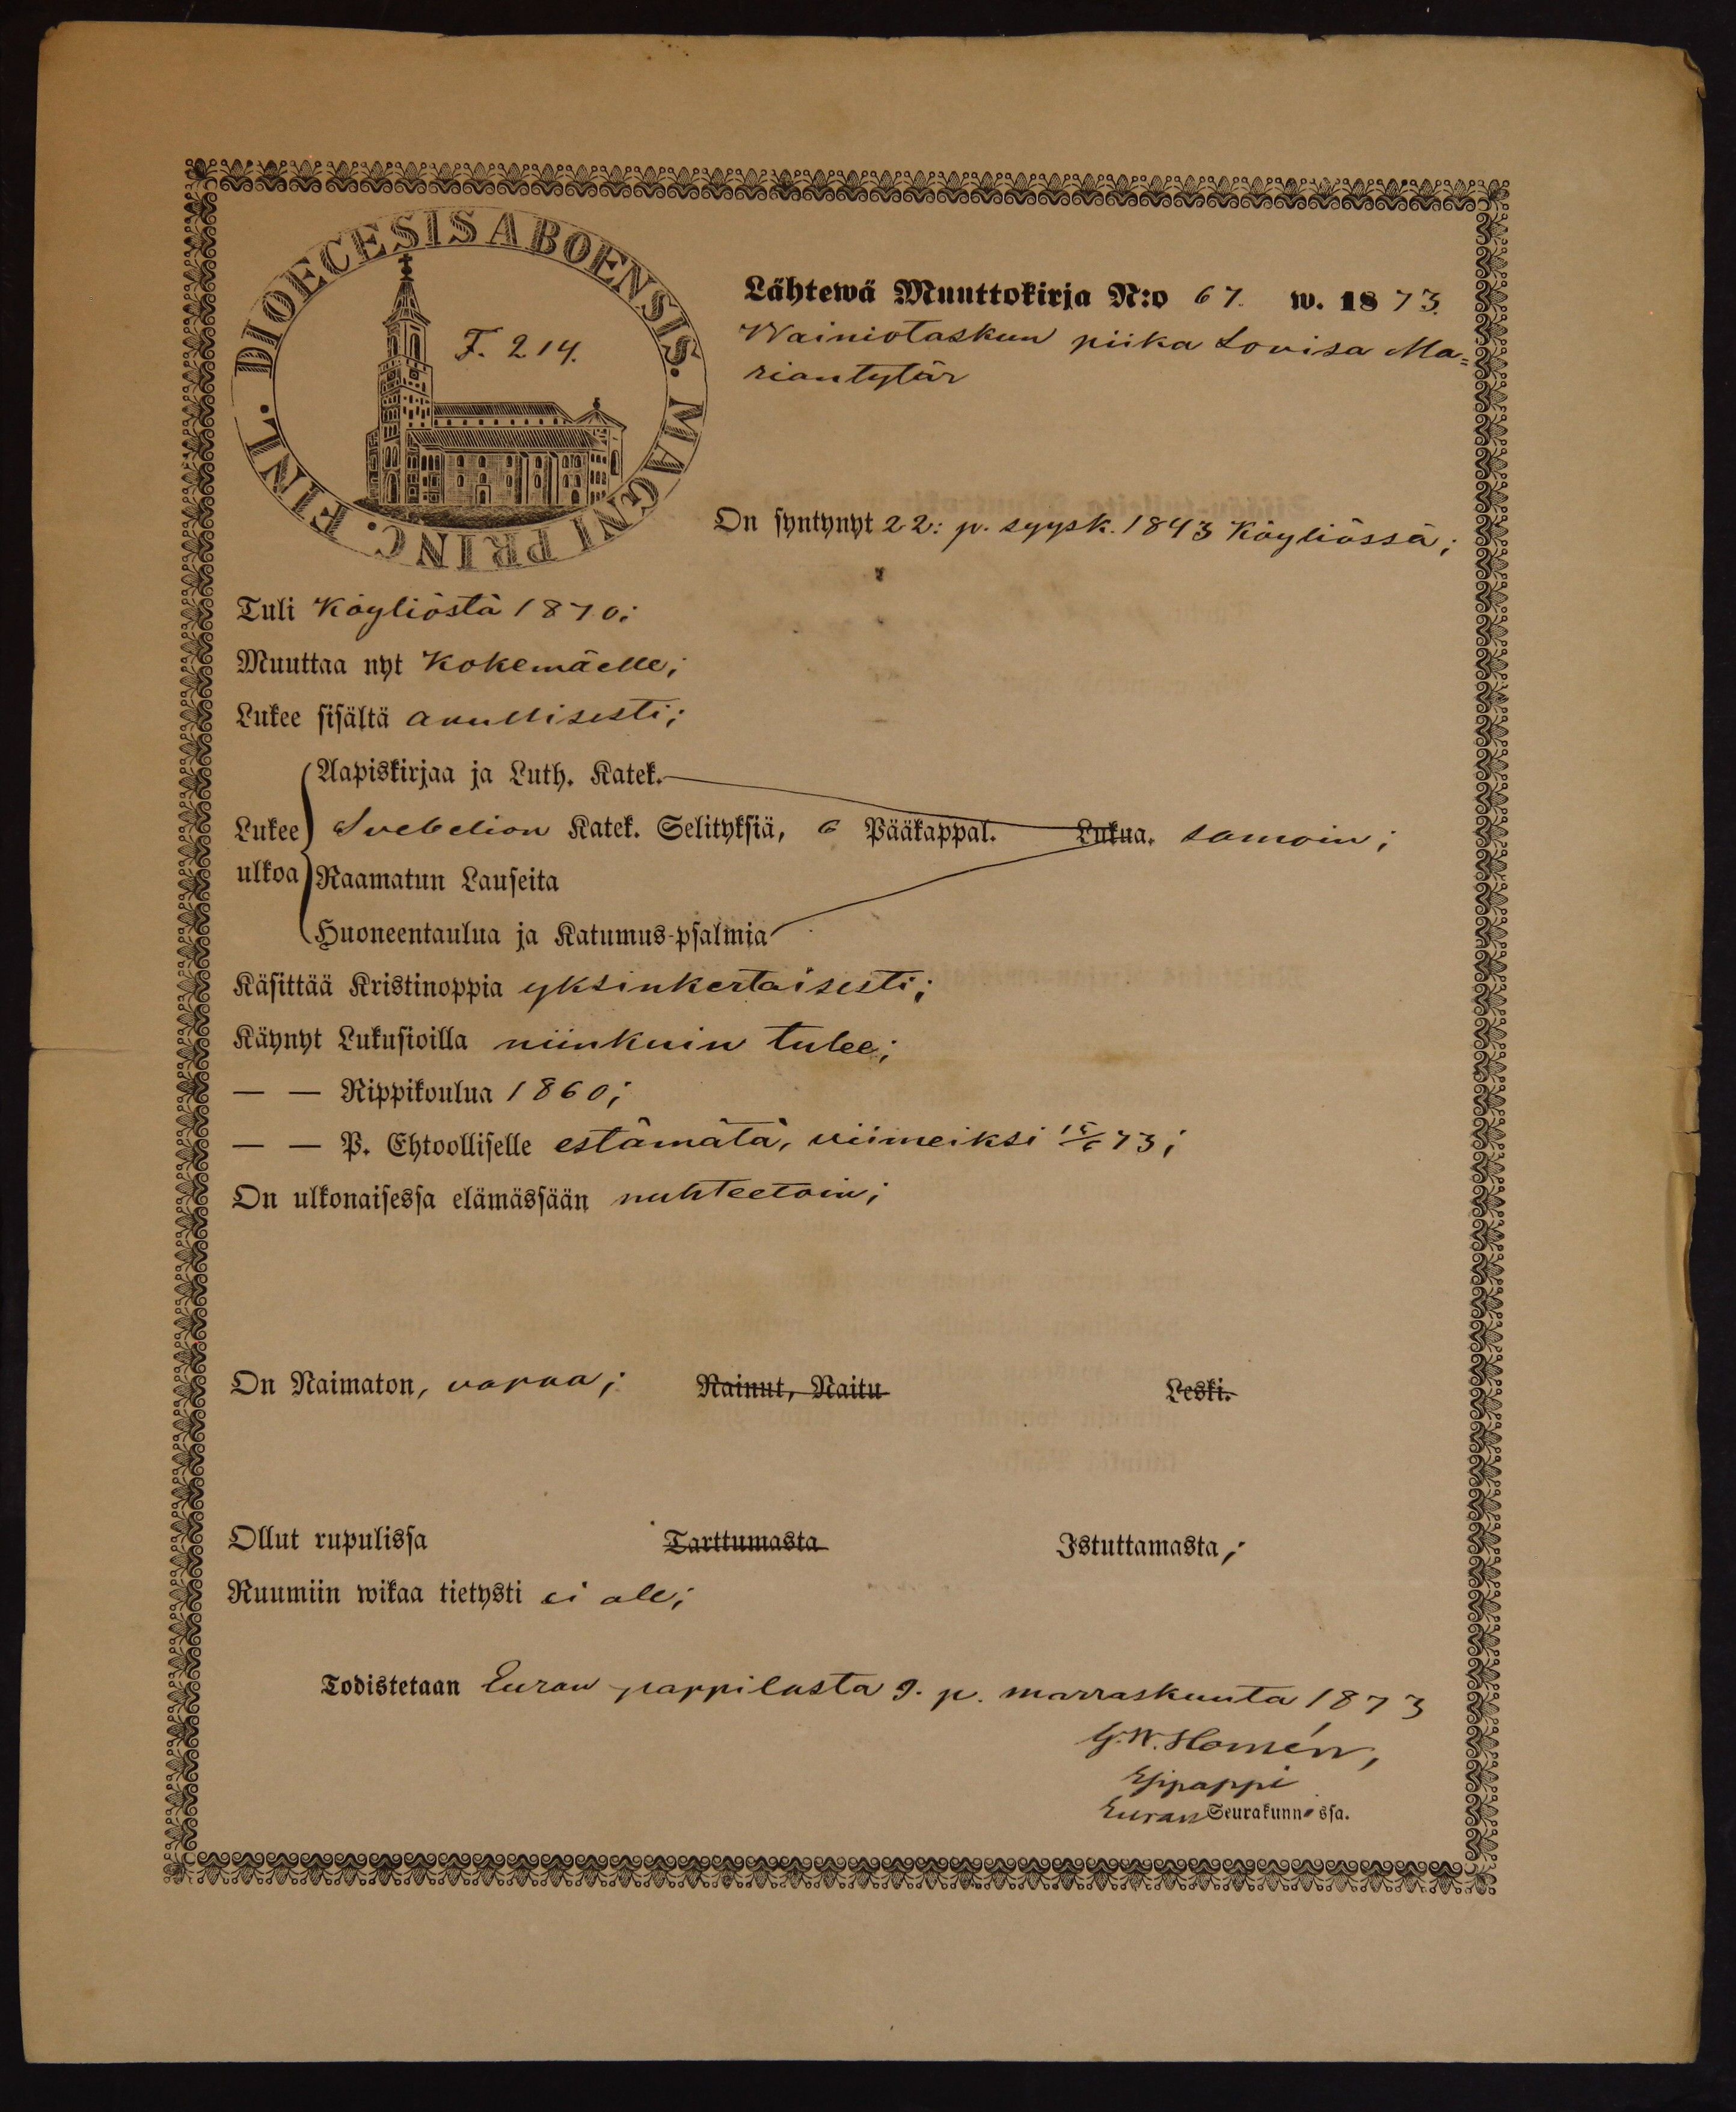 DIOECESIS ABOENSIS. MAGNI PRINC. FINL.
F. 214.
Lähtewä Muuttokirja N:o 67. w. 1873.
Wainiotaskun piika Lovisa Ma=
riantytär
On syntynyt 22: p. syysk. 1843 Köyliössä;
Tuli Köyliöstä 1870;
Muuttaa nyt Kokemäelle;
Lukee sisältä avullisesti;
Aapiskirjaa ja Luth. Katek.
Lukee Svebelion Katek. Selityksiä, 6 Pääkappal. Lukua. samoin;
ulkoa Raamatun Lauseita
Huoneentaulua ja Katumus-psalmia
Käsittää Kristinoppia yksinkertaisesti;
Käynyt Lukusioilla niinkuin tulee;
— — Rippikoulua 1860;
— — P. Ehtoolliselle estämätä, viimeiksi 15/6 73;
On ulkonaisessa elämässään nuhteetoin;
On Naimaton, vapaa; Nainut, Naitu Leski.
Ollut rupulissa Tarttumasta Istuttamasta;
Ruumiin wikaa tietysti ei ole;
Todistetaan Euran pappilasta 9. p. marraskuuta 1873
G. W. Homén,
Esipappi
Euran Seurakunnassa.